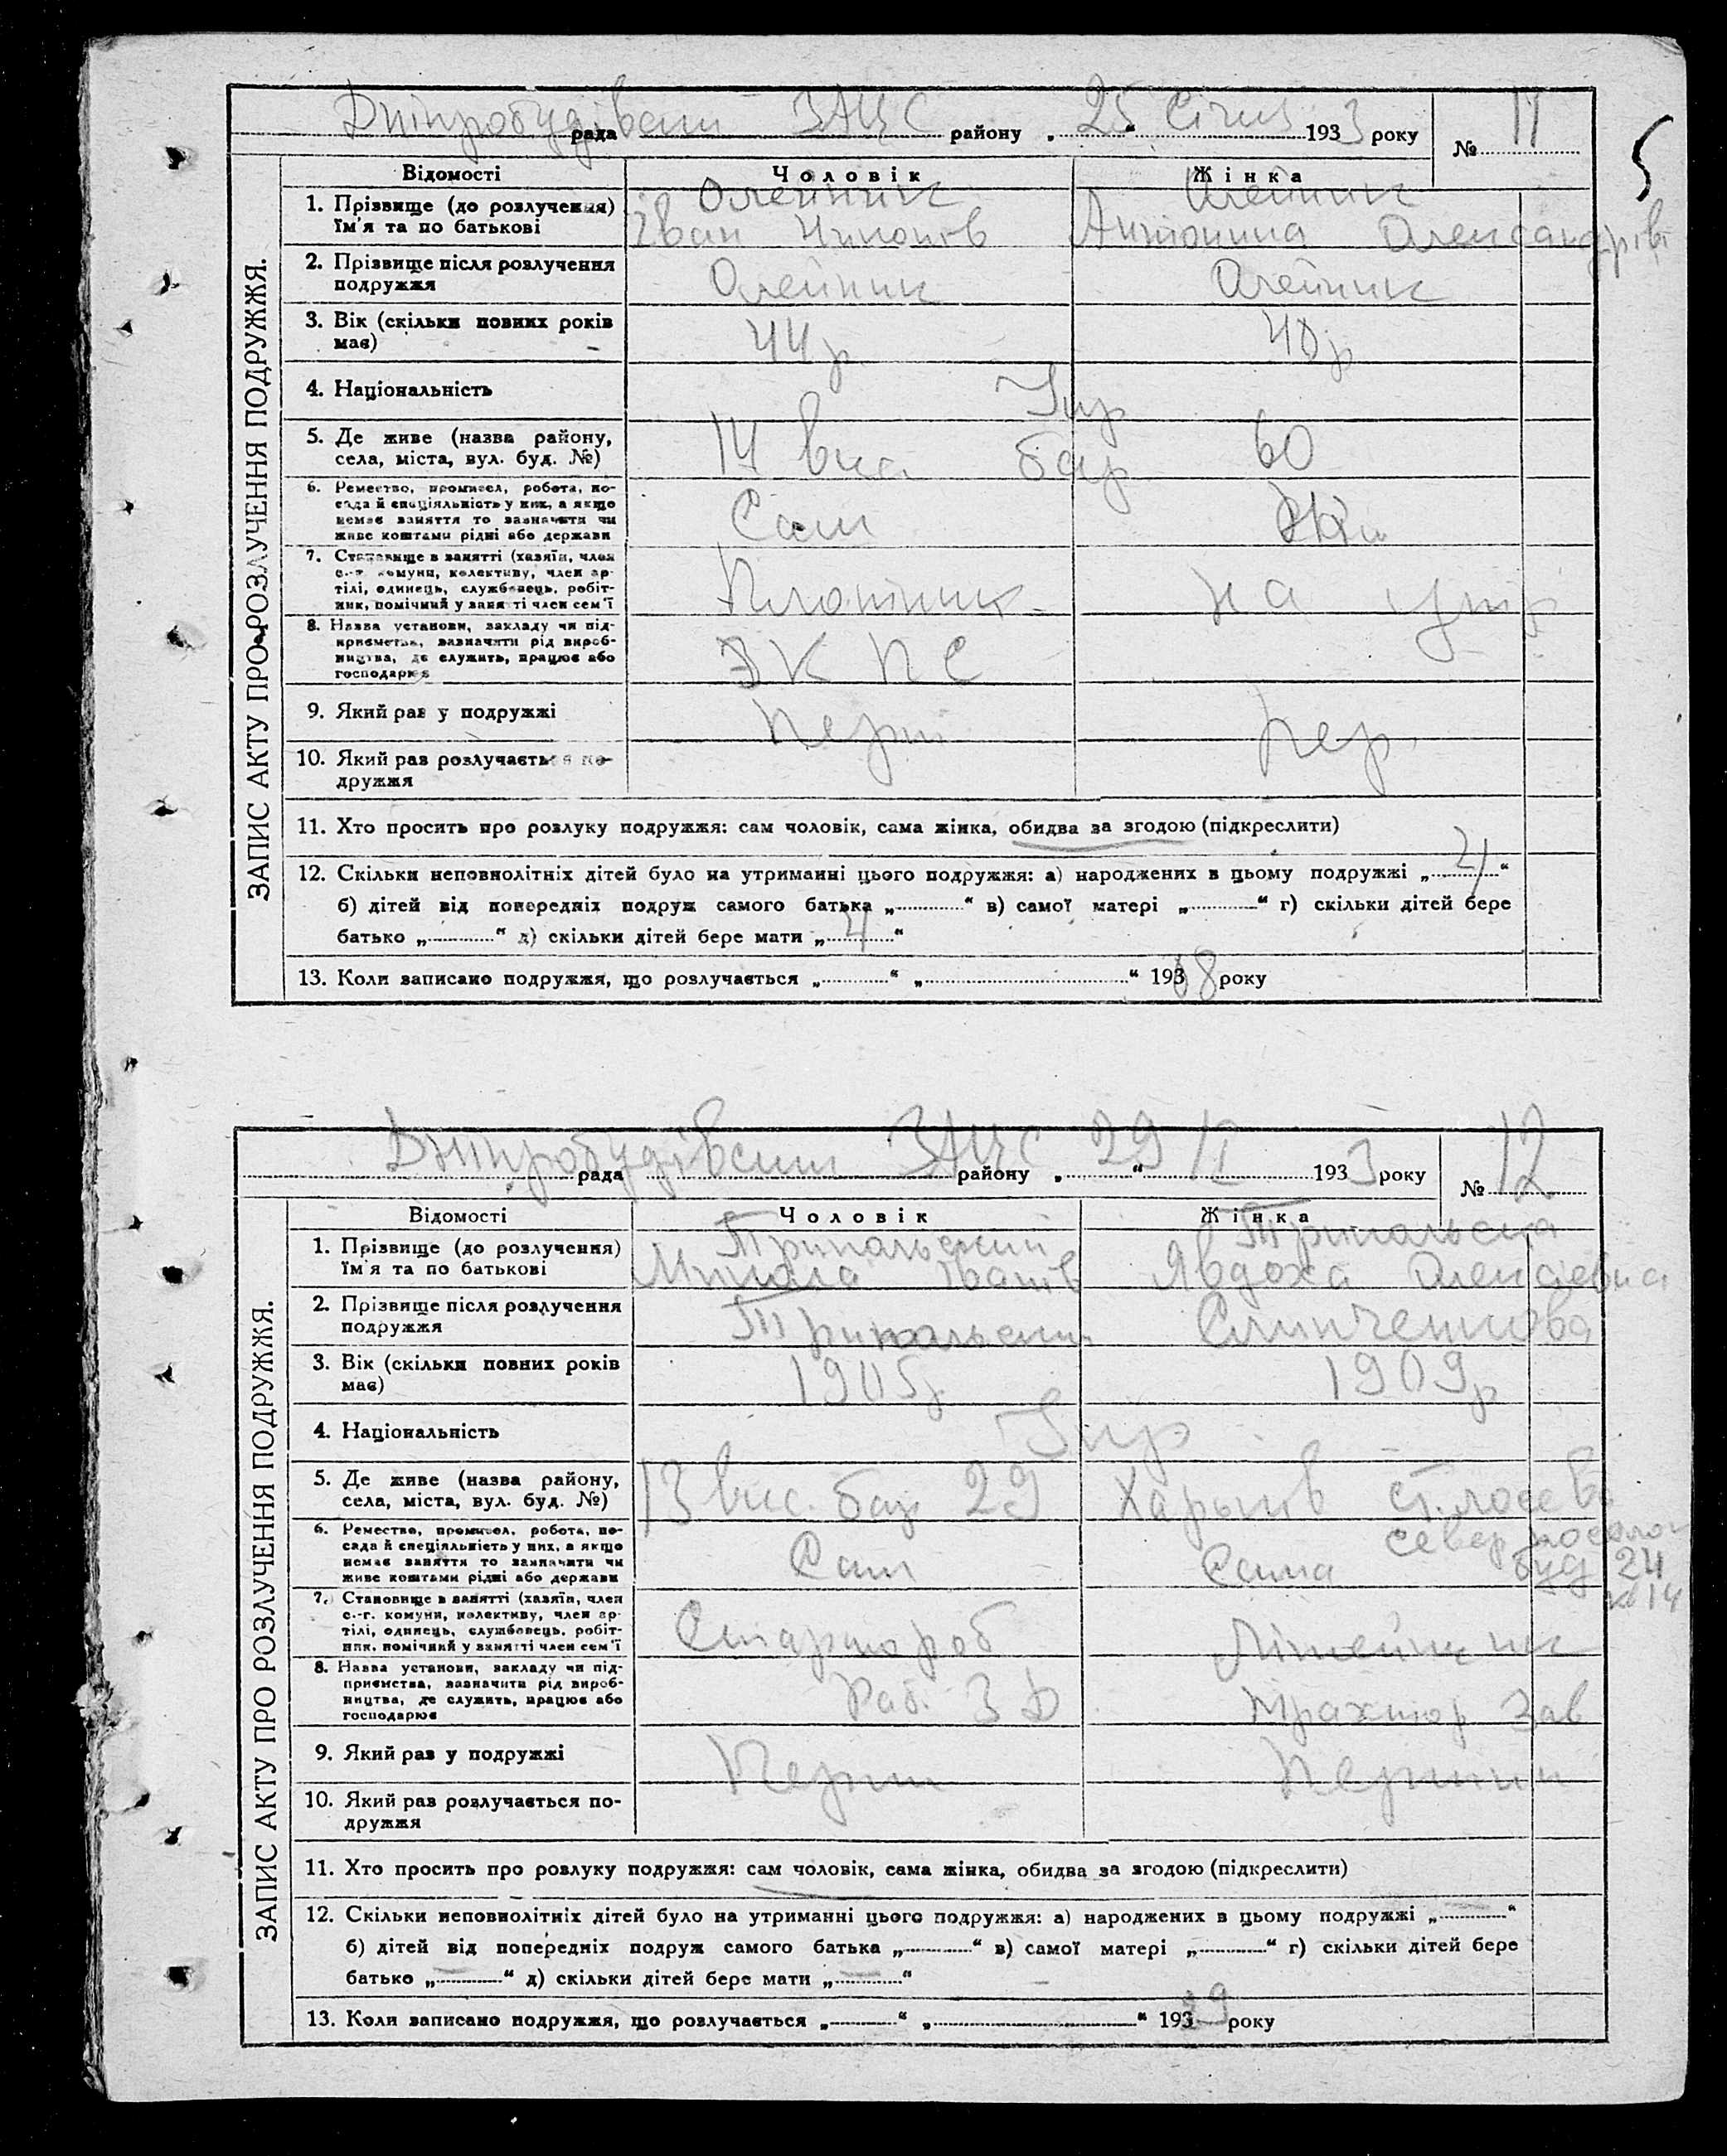 Дніпробудівськ рада ЗАЦС району „ 25 “ Січня 1933 року № 11
5
ЗАПИС АКТУ ПРО РОЗЛУЧЕННЯ ПОДРУЖЖЯ.
Відомості Чоловік Жінка
1. Прізвище (до розлучення) Олейник Олейник
їм'я та по батькові Іван Антонина Олександрів
2. Прізвище після розлучення Олейник Олейник
подружжя
3. Вік (скільки повних років 44 р 40 р
має)
4. Національність Укр
5. Де живе (назва району, 14 вис. бар 60
села, міста, вул. буд. №)
6. Ремество, промисел, робота, по-
сада й спеціяльність у них, а якщо Сам
немає заняття то зазначити чи
живе коштами рідні або держави
7. Становище в занятті (хазяїн, член
с.-г. комуни, колективу, член ар-
тілі, одинець, службовець, робіт- Плотник на утр
ник, помічний у занятті член сем'ї
8. Назва установи, закладу чи під-
приємства, зазначити рід вироб-
ництва, де служить, працює або
господарює
9. Який раз у подружжі Перш Пер.
10. Який раз розлучається по-
дружжя
11. Хто просить про розлуку подружжя: сам чоловік, сама жінка, обидва за згодою (підкреслити)
12. Скільки неповнолітніх дітей було на утриманні цього подружжя: а) народжених в цьому подружжі „ 4 “
б) дітей від попередніх подруж самого батька „ “ в) самої матері „ “ г) скільки дітей бере
батько „ “ д) скільки дітей бере мати „ 4 “
13. Коли записано подружжя, що розлучається „ “ „ “ 1908 року
Дніпробудівськ рада ЗАЦС району „ 29 “ /I 1933 року № 12
ЗАПИС АКТУ ПРО РОЗЛУЧЕННЯ ПОДРУЖЖЯ.
Відомості Чоловік Жінка
1. Прізвище (до розлучення) Трипольский Трипольська
їм'я та по батькові Микола Іванів Явдоха Олексіевна
2. Прізвище після розлучення Трипольский
подружжя
3. Вік (скільки повних років 1905 р 1909 р
має)
4. Національність Укр
5. Де живе (назва району, 13 вис. бар 29 Харьків ст. лосево
села, міста, вул. буд. №) север поселок
6. Ремество, промисел, робота, по- буд 24
сада й спеціяльність у них, а якщо Сам Сама к 14
немає заняття то зазначити чи
живе коштами рідні або держави
7. Становище в занятті (хазяїн, член
с.-г. комуни, колективу, член ар-
тілі, одинець, службовець, робіт- Літейщик
ник, помічний у занятті член сем'ї
8. Назва установи, закладу чи під-
приємства, зазначити рід вироб- Трахтор Зав
ництва, де служить, працює або
господарює
9. Який раз у подружжі Перш Перший
10. Який раз розлучається по-
дружжя
11. Хто просить про розлуку подружжя: сам чоловік, сама жінка, обидва за згодою (підкреслити)
12. Скільки неповнолітніх дітей було на утриманні цього подружжя: а) народжених в цьому подружжі „ — “
б) дітей від попередніх подруж самого батька „ “ в) самої матері „ “ г) скільки дітей бере
батько „ — “ д) скільки дітей бере мати „ — “
13. Коли записано подружжя, що розлучається „ “ „ “ 1929 року